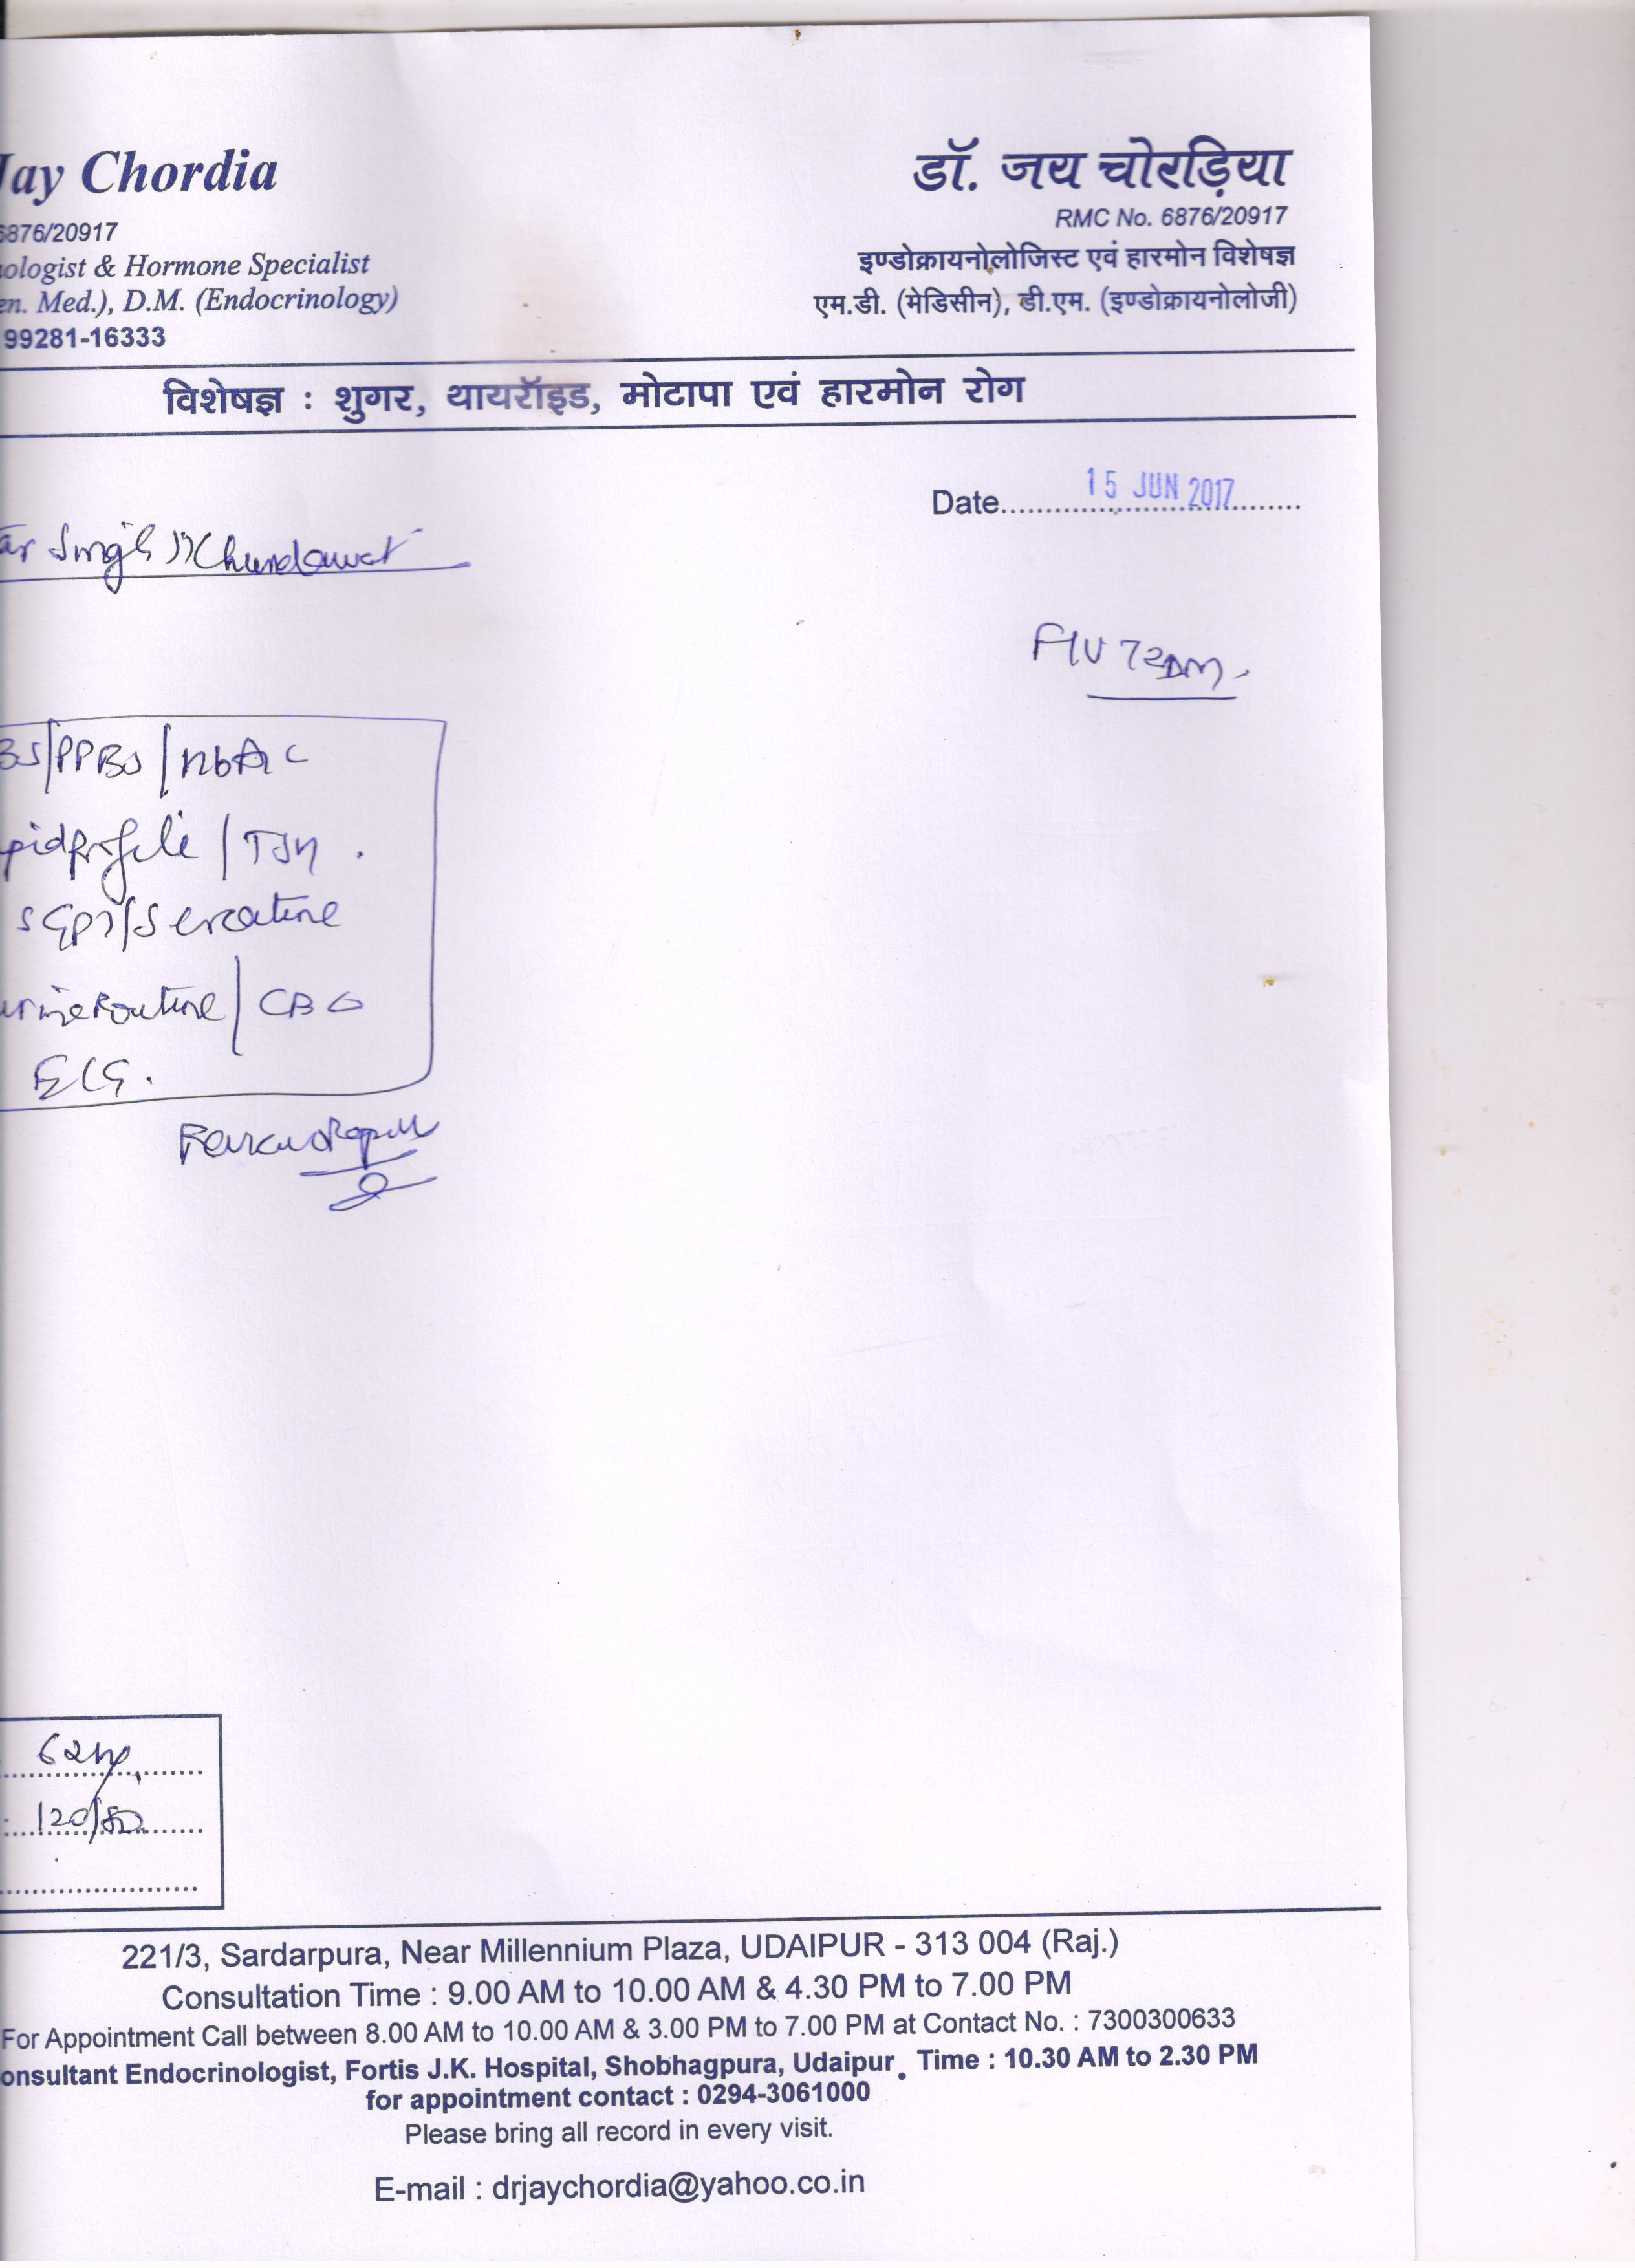 Jay Chordia
डॉ. जय चोरड़िया
6876/20917
RMC No. 6876/20917
ologist & Hormone Specialist
इण्डोक्रायनोलोजिस्ट एवं हारमोन विशेषज्ञ
en. Med.), D.M. (Endocrinology)
एम.डी. (मेडिसीन), डी.एम. (इण्डोक्रायनोलोजी)
99281-16333
विशेषज्ञ : शुगर, थायरॉइड, मोटापा एवं हारमोन रोग
Date 15 JUN 2017
ar Singh Ji Chundawat
F/U T2DM
BS/PPBS/HbA1c
pid profile / TSH
SGPT/S creatine
urine Routine / CBC
ECG.
120/80
221/3, Sardarpura, Near Millennium Plaza, UDAIPUR - 313 004 (Raj.)
Consultation Time : 9.00 AM to 10.00 AM & 4.30 PM to 7.00 PM
For Appointment Call between 8.00 AM to 10.00 AM & 3.00 PM to 7.00 PM at Contact No. : 7300300633
onsultant Endocrinologist, Fortis J.K. Hospital, Shobhagpura, Udaipur. Time : 10.30 AM to 2.30 PM
for appointment contact : 0294-3061000
Please bring all record in every visit.
E-mail : drjaychordia@yahoo.co.in